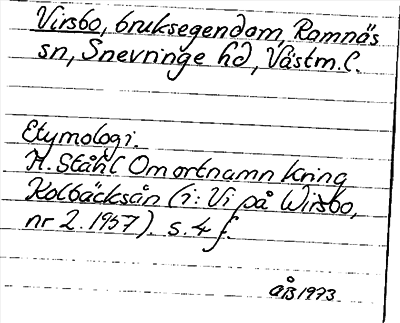 Virsbo, bruksegendom, Ramnäs
sn, Snevringe hd, Västm. l.
Etymologi.
H. Ståhl Om ortnamn kring
Kolbäcksån (i: Vi på Wirsbo,
nr 2. 1957). s. 4 f.
ÅB 1973